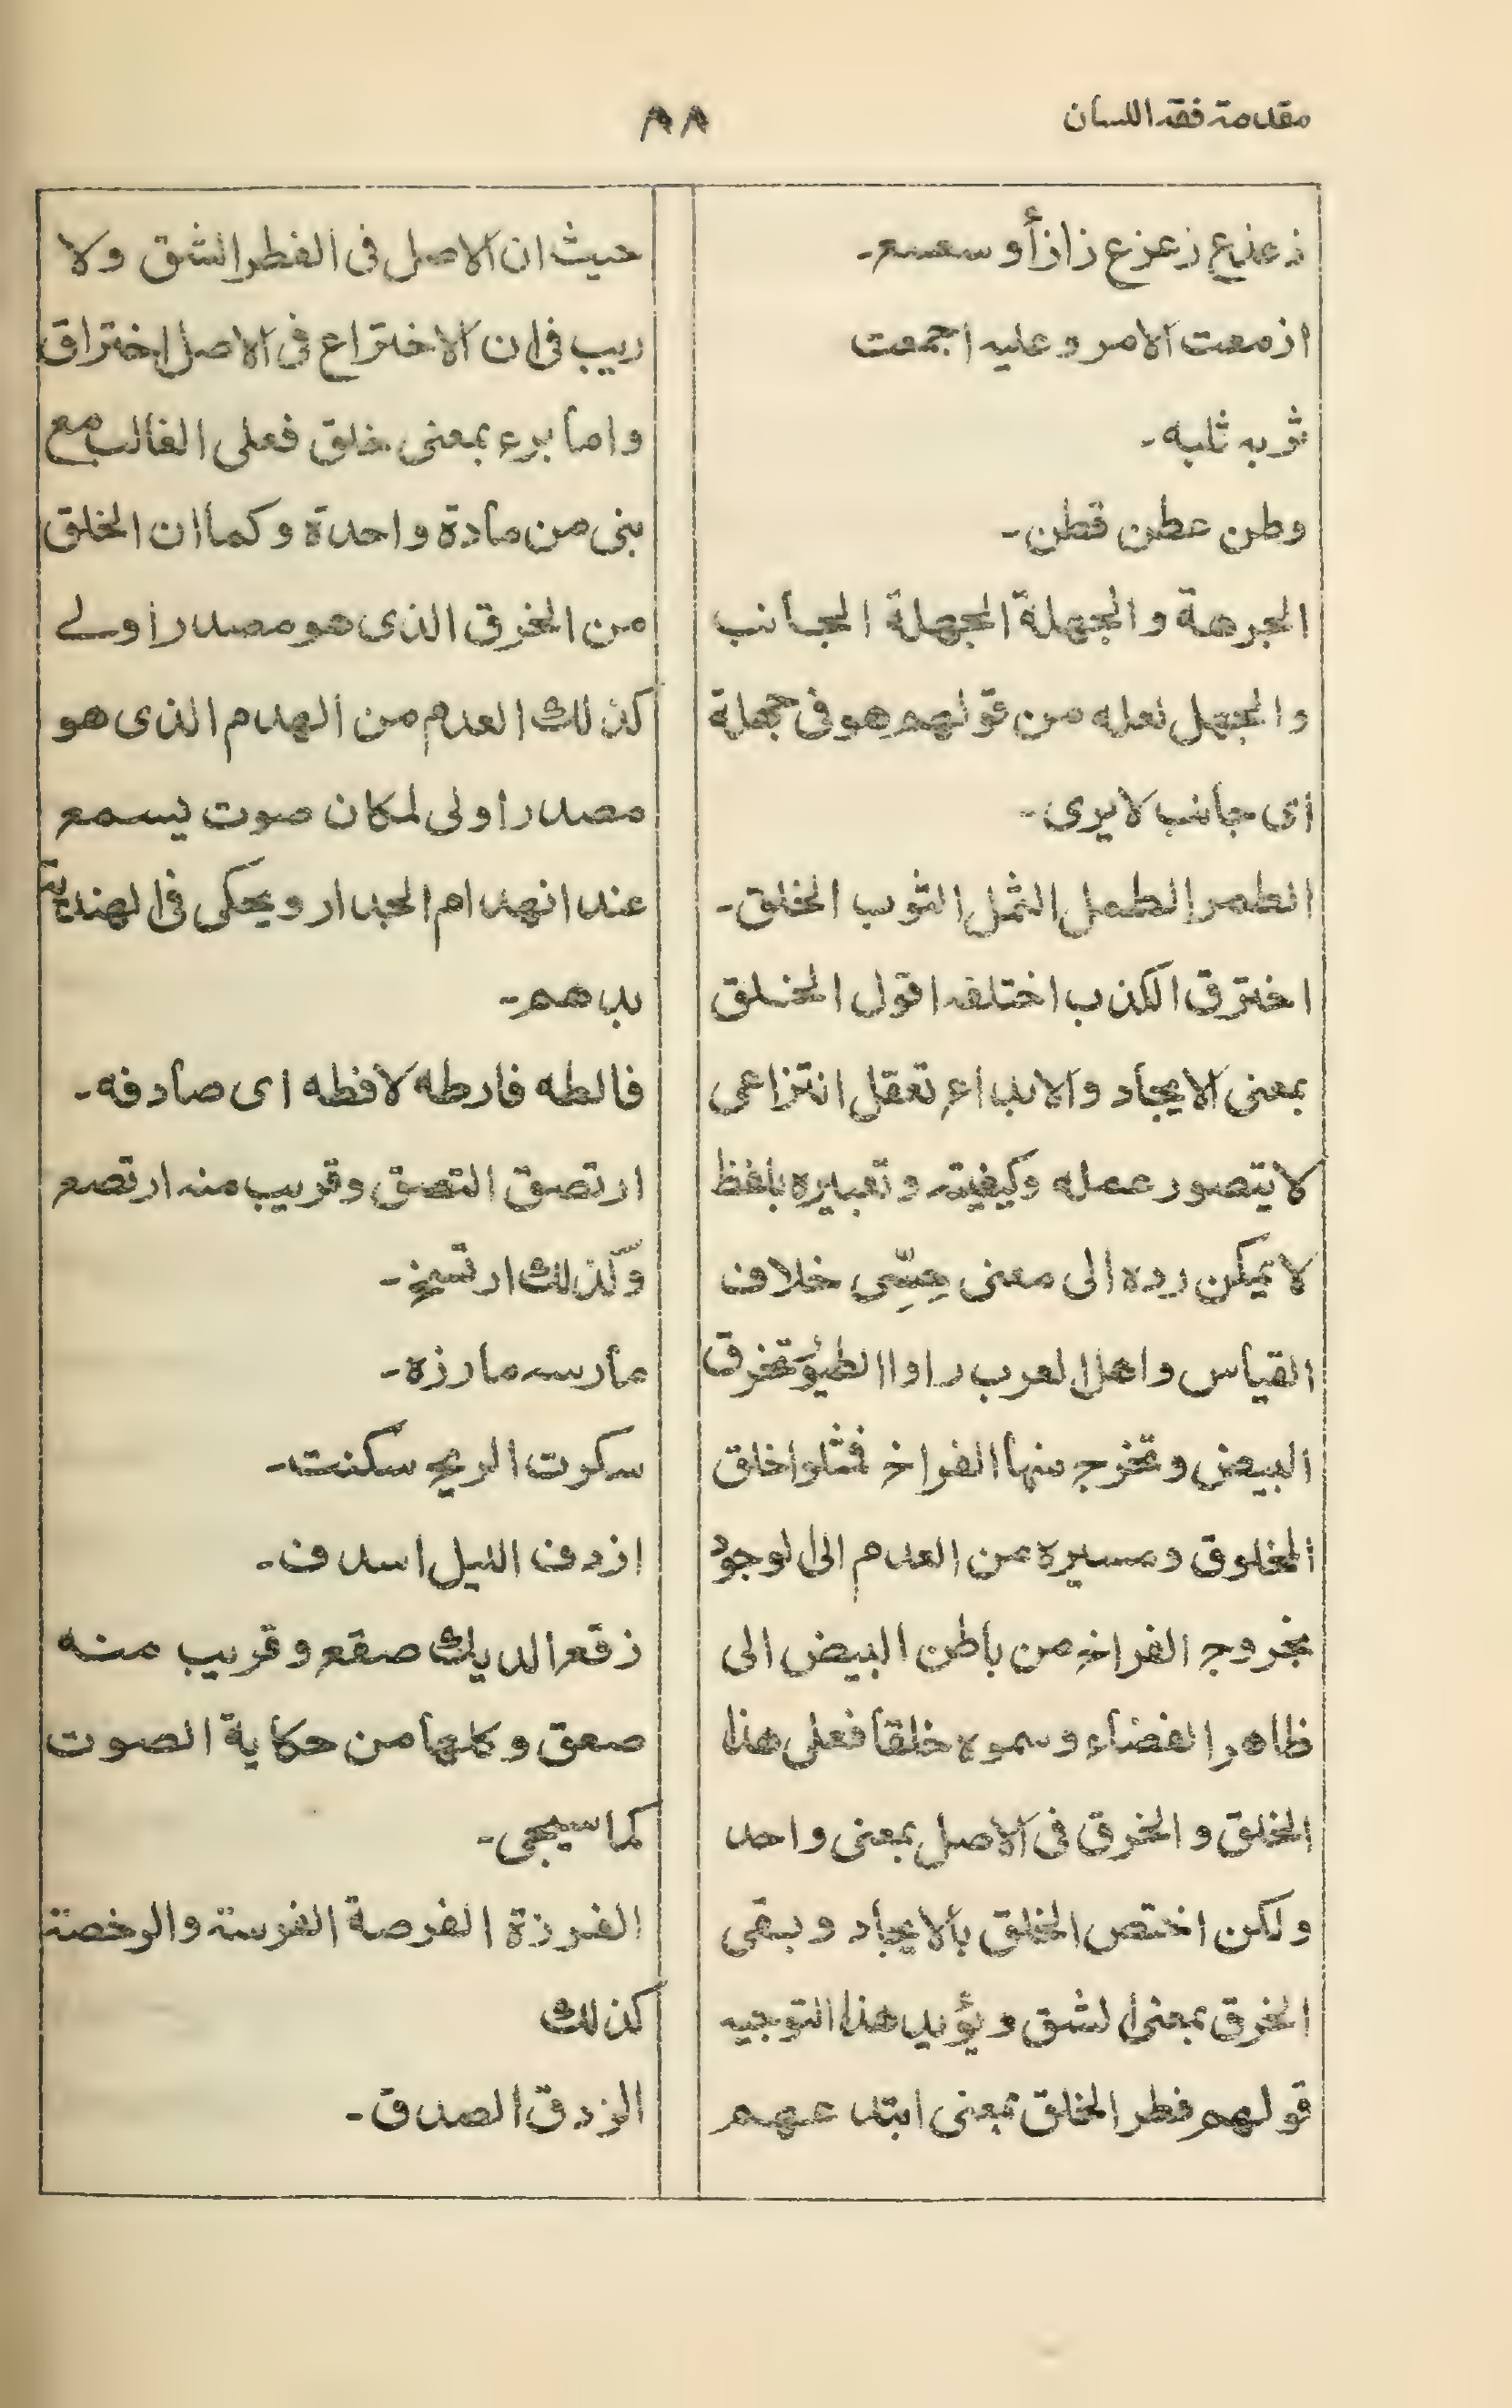 مقدمة فقه اللسان
٨٨
زعزع زأزأ و سعسع ۔
ازمعت الامر و عليه اجمعت
ثربه ثلبه ۔
وطن عطن قطن ۔
الجرهة و الجهلة الجهلة الجانب
و الجهل لعله من قولهم هو فى جهلة
اى جانب لا يرى ۔
الطمر الطمل الثمل الثوب الخلق ۔
اخترق الكذب اختلقه اقول الخلق
بمعنى الايجاد و الابداع تعقل انتزاعى
لا يتصور عمله و كيفيته و تعبيره بلفظ
لا يمكن رده الى معنى حِسِّى خلاف
القياس و اهل العرب راوا الطيور تخرق
البيض و تخرج منها الفراخ فمثلوا خلق
المخلوق و مسيره من العدم الى الوجود
بخروج الفراخ من باطن البيض الى
ظاهر الفضاء و سموه خلقا فعلى هذا
الخلق و الخرق فى الاصل بمعنى واحد
ولكن اختص الخلق بالايجاد و بقى
الخرق بمعنى الشق و يؤيد هذا التوجيه
قولهم فطر الخلق بمعنى ابتدعهم
حيث ان الاصل فى الفطر الشق و لا
ريب فى ان الاختراع فى الاصل اختراق
و اما برء بمعنى خلق فعلى الغالب مع
بنى من مادة واحدة و كما ان الخلق
من الخرق الذى هو مصدر اولے
كذلك العدم من الهدم الذى هو
مصدر اولى لمكان صوت يسمع
عند انهدام الجدار و يحكى فى الهندية
بدهم ۔
فالطه فارطه لافظه اى صادفه ۔
ارتصق التصق و قريب منه ارتصع
و كذلك ارتسخ ۔
مارسه مارزه ۔
سكرت الريح سكنت ۔
ازدف الليل اسدف ۔
زقع الديك صقع و قريب منه
صعق و كلها من حكاية الصوت
كما سيجى ۔
الفرزة الفرصة الفرسة و الرخصة
كذلك
الزدق الصدق ۔